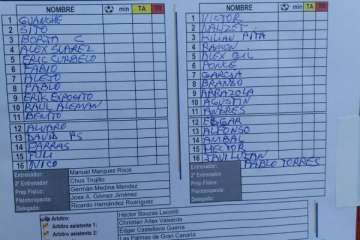 NOMBRE min TA
1 GUANCHE
2 SITO
3 BORJA C
4 ALEX SUAREZ
5 ERIC CURBELO
6 FABIO
7 DIEGO
8 PABLO
9 ERIC EXPOSITO
10 RAUL ALEMAN
11 BENITO
12 ALVARO
13 DAVID PS
14 PARRAS
15 YULI
16
Entrenador: Manuel Marquez Roca
2º Entrenador Chus Trujillo
Prep Físico German Medina Mendez
Fisioterapeuta Jose A. Gómez Jiménez
Delegado Ricardo Hernández Rodríguez
NOMBRE min TA
1 VICTOR
2
3 KILIAN PITA
4 RAMON
5 ALEX GIL
6 PONCE
7 GARCIA
8 BRANDO
9 ARRAZOLA
10 AGUSTIN
11 ANDRES
12 EDGAR
13 ALFONSO
14 AMBAL
15 HECTOR
16 PABLO TORRES
Entrenador
2º Entrenador
Prep Físico
Fisioterapeuta
Delegado
Árbitro: Héctor Sauces Lecontt
Árbitro asistente 1: Christian Arias Valencia
Árbitro asistente 2: Edgar Castellano Guerra
Las Palmas de Gran Canaria